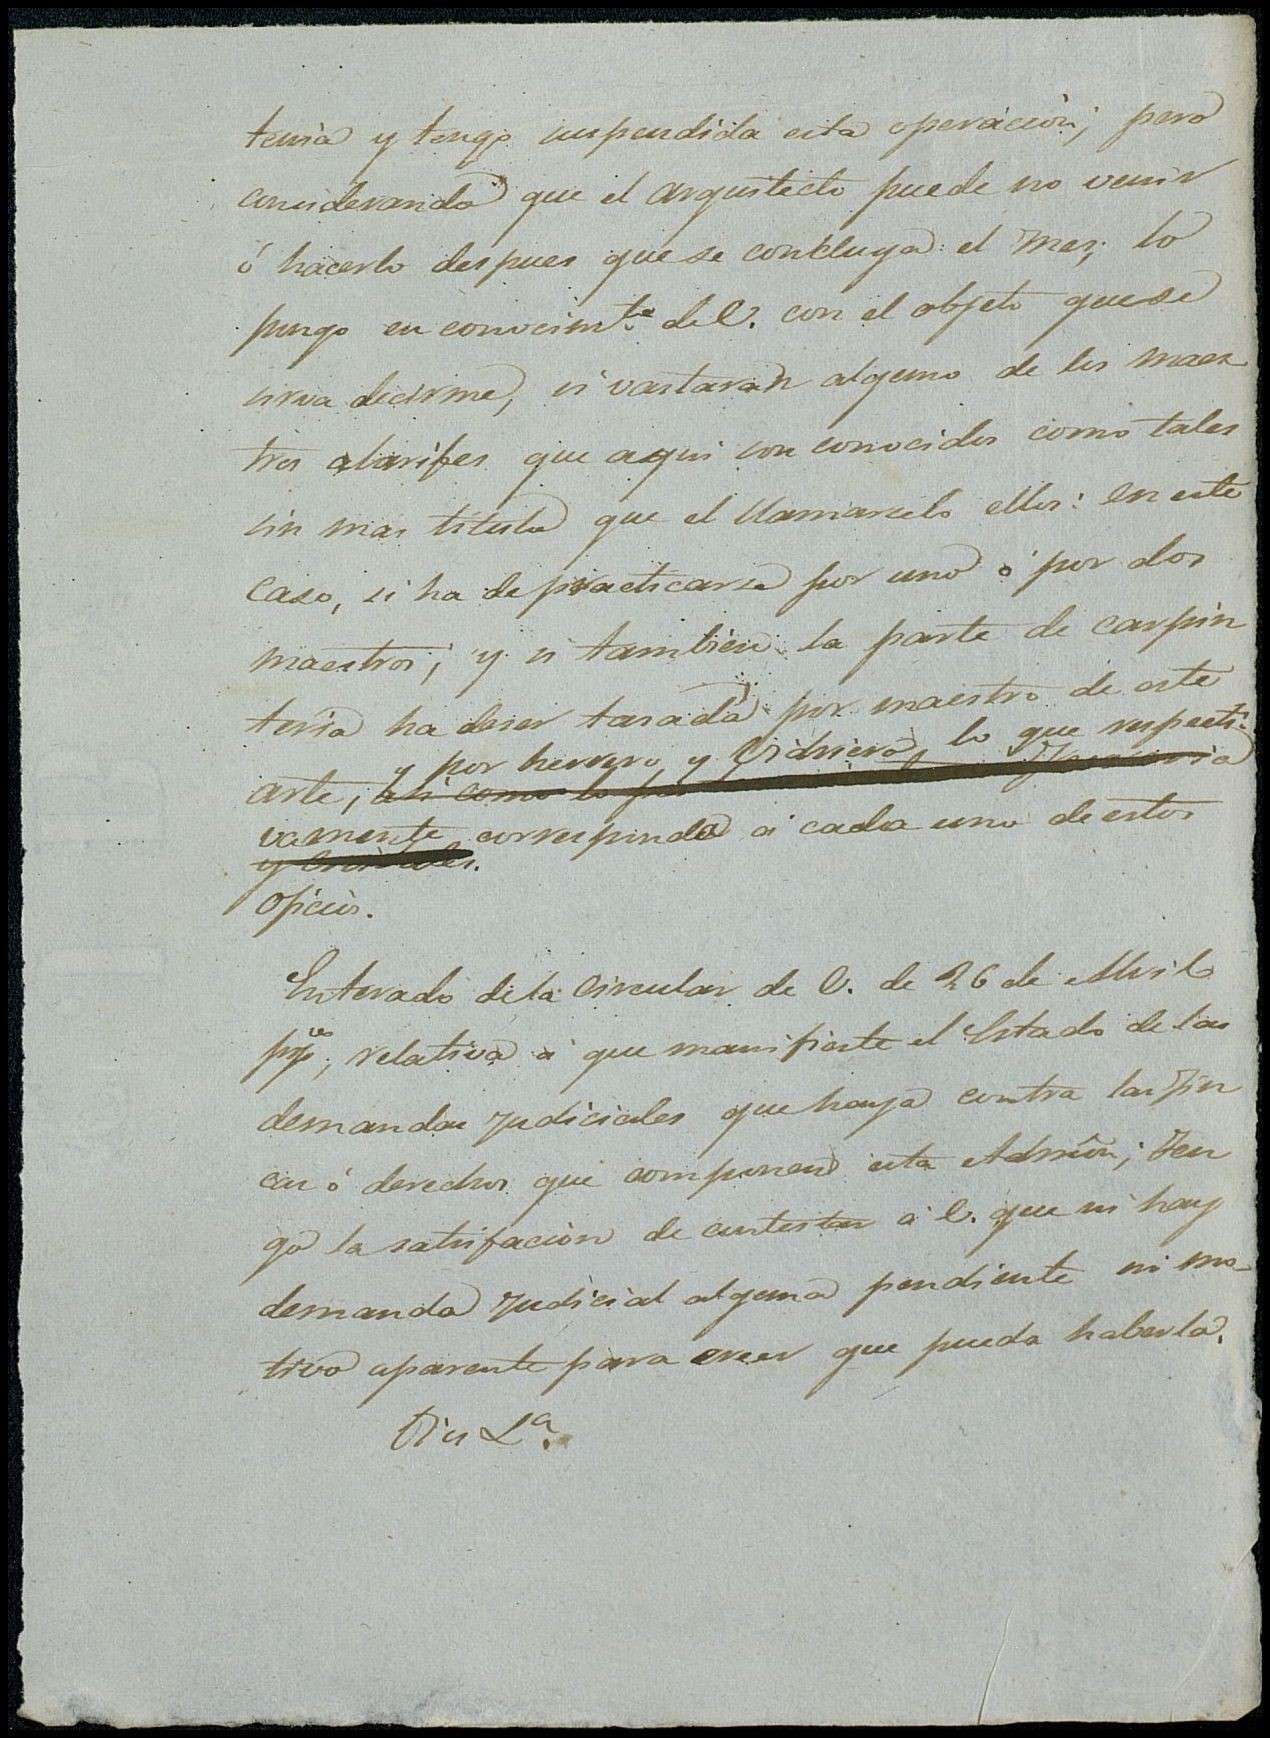 tenia y tengo suspendida esta operación; pero
considerando que el arquitecto puede no venir
ó hacerlo despues que se concluya el mes; lo
pongo en conocimto. de V. con el objeto que se
sirva decirme, si vastaran alguno de los maes
tros alarifes que aqui son conocidos como tales
sin mas titulo que el llamarselo ellos: en este
caso, si ha de practicarse por uno ó por dos
maestros; y si tambien la parte de carpin
teria ha de ser tasada por maestro de este
y por herrero y Vidriero, lo que respecti-
arte, asi como lo
vamente corresponda á cada uno de estos
y Cristales.
Oficios.
Enterado de la Circular de V. de 26 de Abril
ppdo, relativa á que manifieste el Estado de las
demandas Judiciales que haya contra las fin
cas ó derechos que componen esta Admôn; ten
go la satisfacion de contestar á V. que ni hay
demanda Judicial alguna pendiente ni mo-
tivo aparente para creer que pueda haberla.
Dios La.